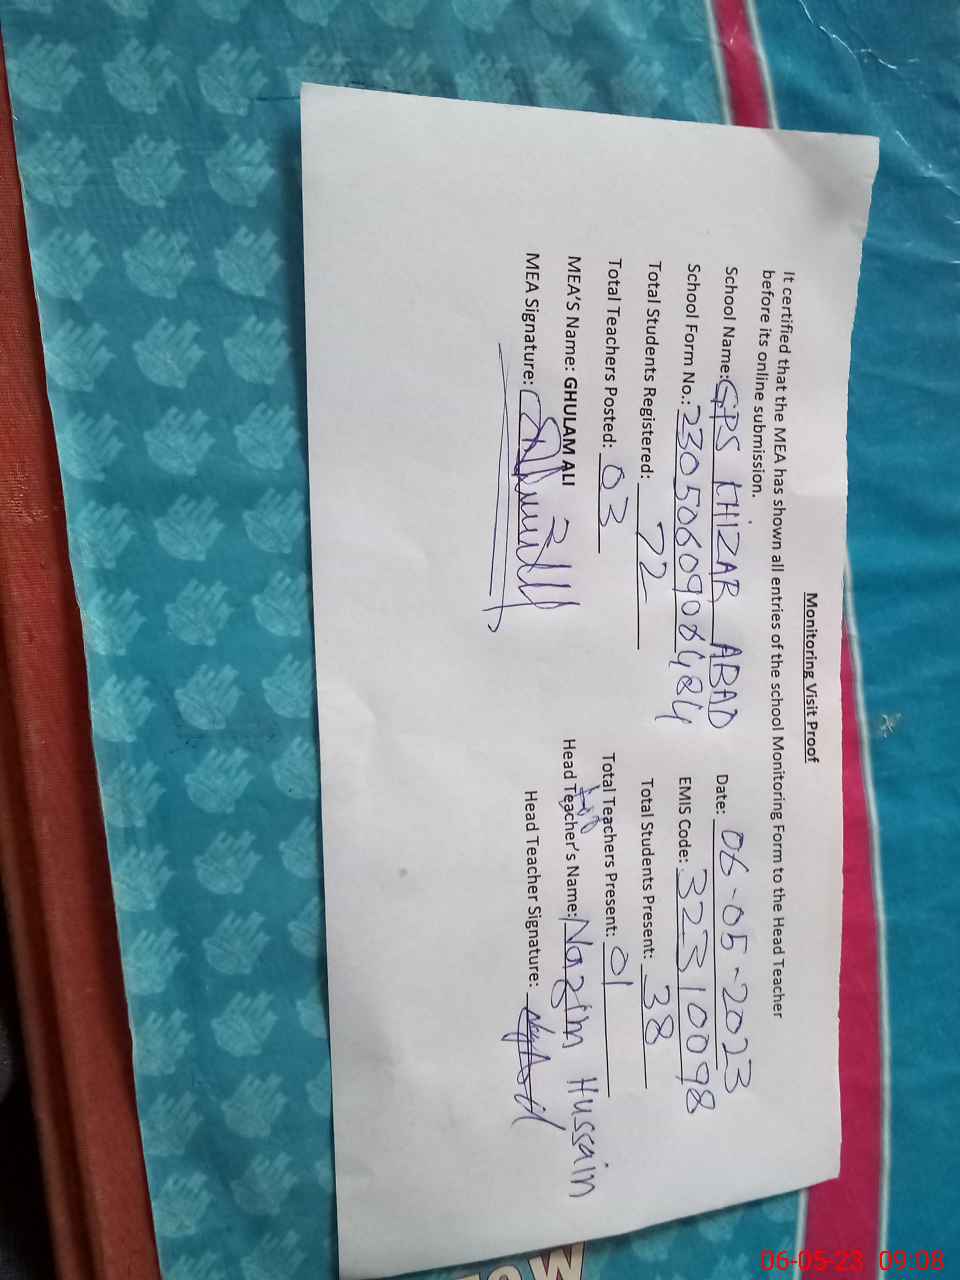 Monitoring Visit Proof
It certified that the MEA has shown all entries of the school Monitoring Form to the Head Teacher
before its online submission.
School Name: GPS KHIZAR ABAD Date: 06-05-2023
School Form No.: EMIS Code: 32310098
Total Students Registered: 72 Total Students Present: 38
Total Teachers Posted: 03 Total Teachers Present: 01
MEA'S Name: GHULAM ALI Head Teacher's Name: Nazim Hussain
MEA Signature: Head Teacher Signature:
06-05-23 09:08